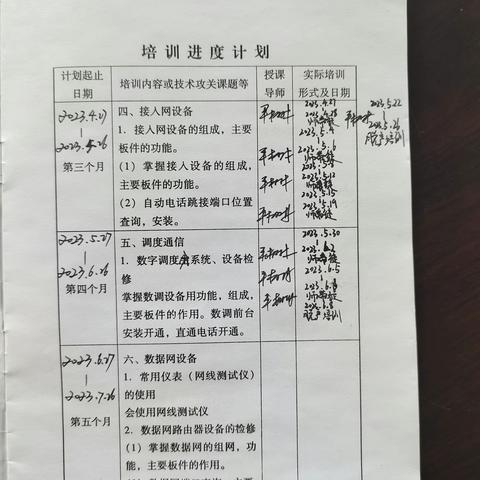 培训进度计划
计划起止
日期
培训内容或技术攻关课题等
授课
导师
实际培训
形式及日期
2023.4.27
2023.5.26
第三个月
四、接入网设备
1. 接入网设备的组成，主要
板件的功能。
(1) 掌握接入设备的组成，
主要板件的功能。
(2) 自动电话跳接端口位置
查询，安装。
2023.4.27
2023.4.28
师带徒
2023.5.4
2023.5.6
师带徒
2023.5.12
师带徒
2023.5.15
2023.5.19
师带徒
2023.5.22
2023.5.26
脱产培训
2023.5.27
2023.6.26
第四个月
五、调度通信
1. 数字调度系统、设备检
修
掌握数调设备用功能，组成，
主要板件的作用。数调前台
安装开通，直通电话开通。
2023.5.30
师带徒
2023.6.5
师带徒
脱产培训
2023.6.27
2023.7.26
第五个月
六、数据网设备
1. 常用仪表（网线测试仪）
的使用
会使用网线测试仪
2. 数据网路由器设备的检修
(1) 掌握数据网的组网，功
能，主要板件的作用。